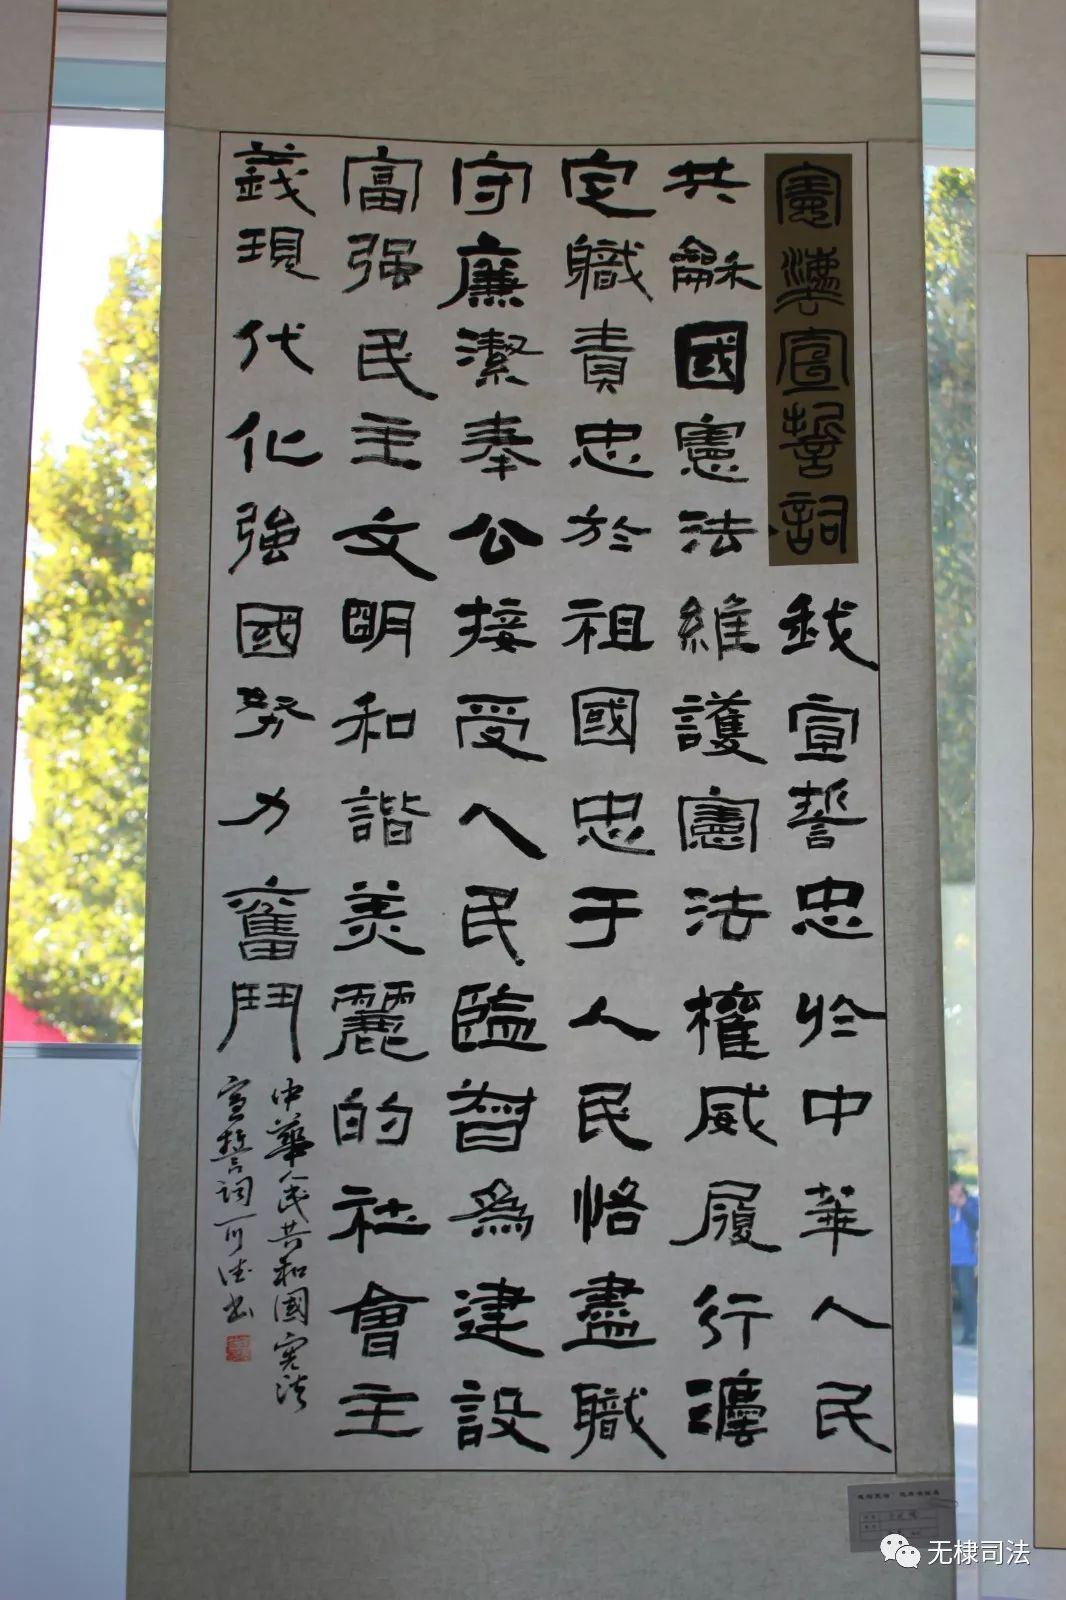 憲灋宣誓詞
我宣誓忠於中華人民
共龢國憲法維護憲法權威履行灋
定職責忠於祖國忠于人民恪盡職
守廉潔奉公接受人民監督為建設
富强民主文明和諧美麗的社會主
義現代化強國努力奮鬥
中華人民共和國宪法
宣誓詞
无棣司法